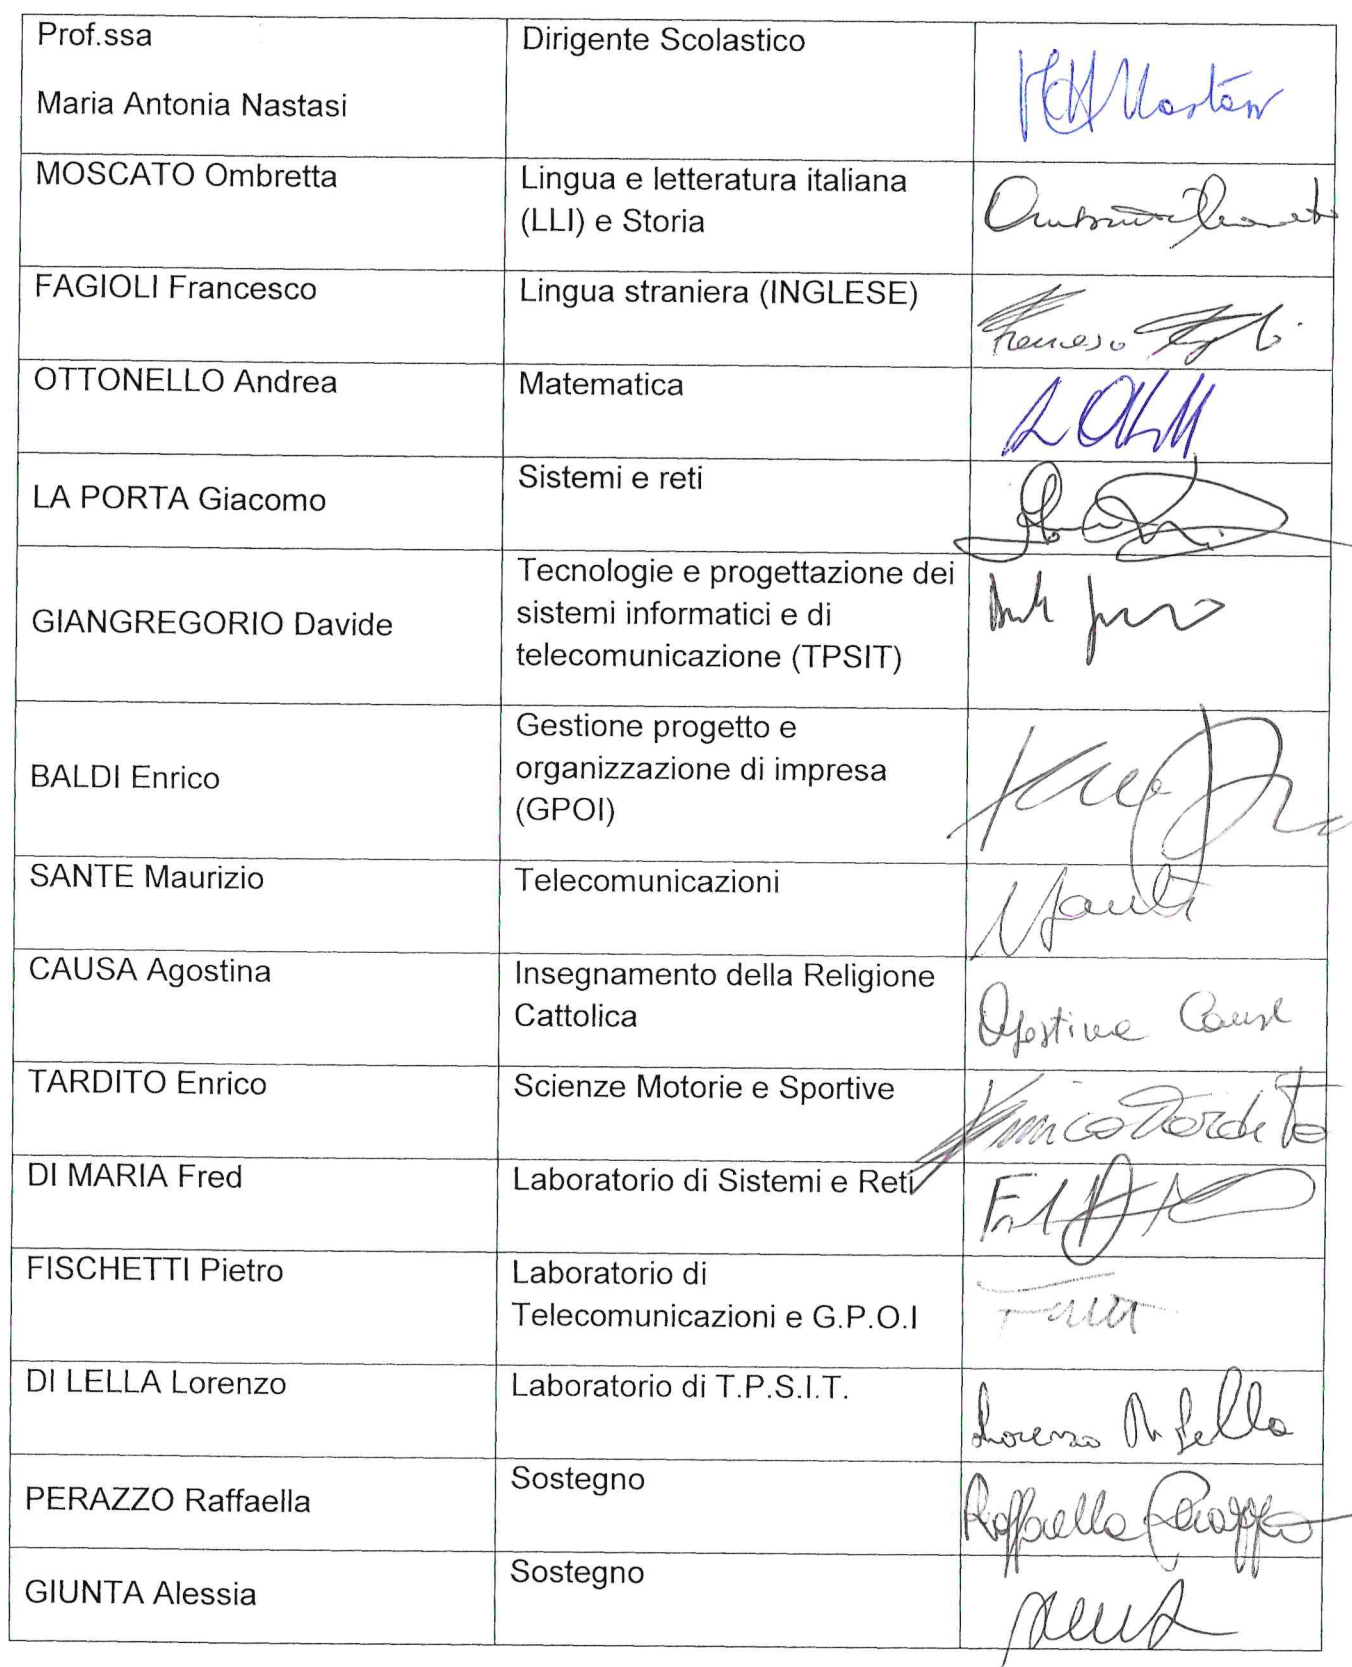 Prof.ssa
Maria Antonia Nastasi
Dirigente Scolastico
MOSCATO Ombretta
Lingua e letteratura italiana
(LLI) e Storia
FAGIOLI Francesco
Lingua straniera (INGLESE)
Francesco Fagioli
OTTONELLO Andrea
Matematica
LA PORTA Giacomo
Sistemi e reti
GIANGREGORIO Davide
Tecnologie e progettazione dei
sistemi informatici e di
telecomunicazione (TPSIT)
BALDI Enrico
Gestione progetto e
organizzazione di impresa
(GPOI)
SANTE Maurizio
Telecomunicazioni
CAUSA Agostina
Insegnamento della Religione
Cattolica
Agostina Causa
TARDITO Enrico
Scienze Motorie e Sportive
Enrico Tardito
DI MARIA Fred
Laboratorio di Sistemi e Reti
FISCHETTI Pietro
Laboratorio di
Telecomunicazioni e G.P.O.I
DI LELLA Lorenzo
Laboratorio di T.P.S.I.T.
Lorenzo Di Lella
PERAZZO Raffaella
Sostegno
Raffaella Perazzo
GIUNTA Alessia
Sostegno